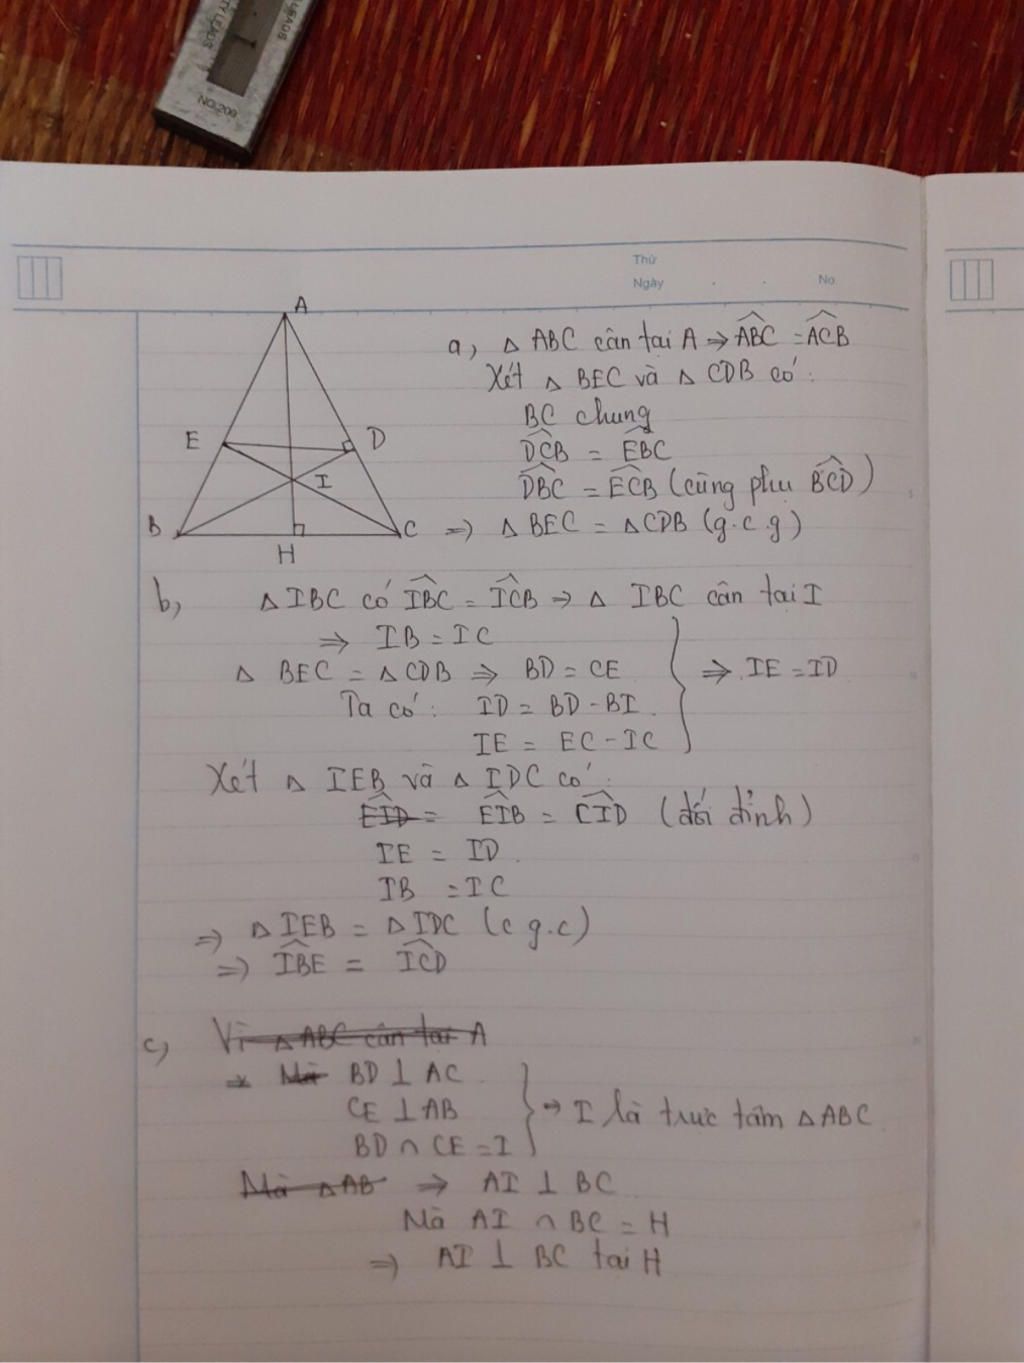 TY LEADS
LEADS
NO.209
Thứ
Ngày . . No.
A
E
D
I
B
C
H
a, △ ABC cân tại A ⇒ \widehat{ABC} = \widehat{ACB}
Xét △ BEC và △ CDB có :
BC chung
\widehat{DCB} = \widehat{EBC}
\widehat{DBC} = \widehat{ECB} (cùng phụ \widehat{BCD})
⇒ △ BEC = △CDB (g.c.g)
b, △ IBC có \widehat{IBC} = \widehat{ICB} ⇒ △ IBC cân tại I
⇒ IB = IC
△ BEC = △ CDB ⇒ BD = CE
⇒ IE = ID
Ta có : ID = BD - BI .
IE = EC - IC
Xét △ IEB và △ IDC có :
\widehat{EID} = \widehat{EIB} = \widehat{CID} (đối đỉnh)
IE = ID .
IB = IC
⇒ △ IEB = △ IDC (c g.c)
⇒ \widehat{IBE} = \widehat{ICD}
c, Vì △ ABC cân tại A
⇒ Mà BD ⊥ AC
CE ⊥ AB
⇒ I là trực tâm △ ABC
BD ∩ CE = I
Mà △ AB ⇒ AI ⊥ BC
Mà AI ∩ BC = H
⇒ AI ⊥ BC tại H